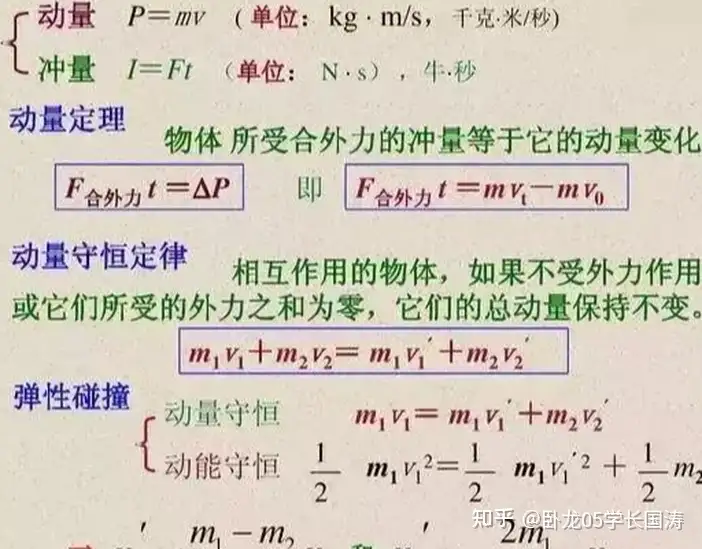 动量 P=mv (单位: kg·m/s, 千克·米/秒)
冲量 I=Ft (单位: N·s), 牛·秒
动量定理
物体 所受合外力的冲量等于它的动量变化
F合外力 t=ΔP 即 F合外力 t=mvt-mv0
动量守恒定律
相互作用的物体,如果不受外力作用
或它们所受的外力之和为零,它们的总动量保持不变。
m1v1+m2v2= m1v1′+m2v2′
弹性碰撞
动量守恒 m1v1= m1v1′+m2v2′
动能守恒 1/2 m1v1²=1/2 m1v1′² + 1/2 m2
知乎 @卧龙05学长国涛
′ m1-m2 和 ′ 2m1